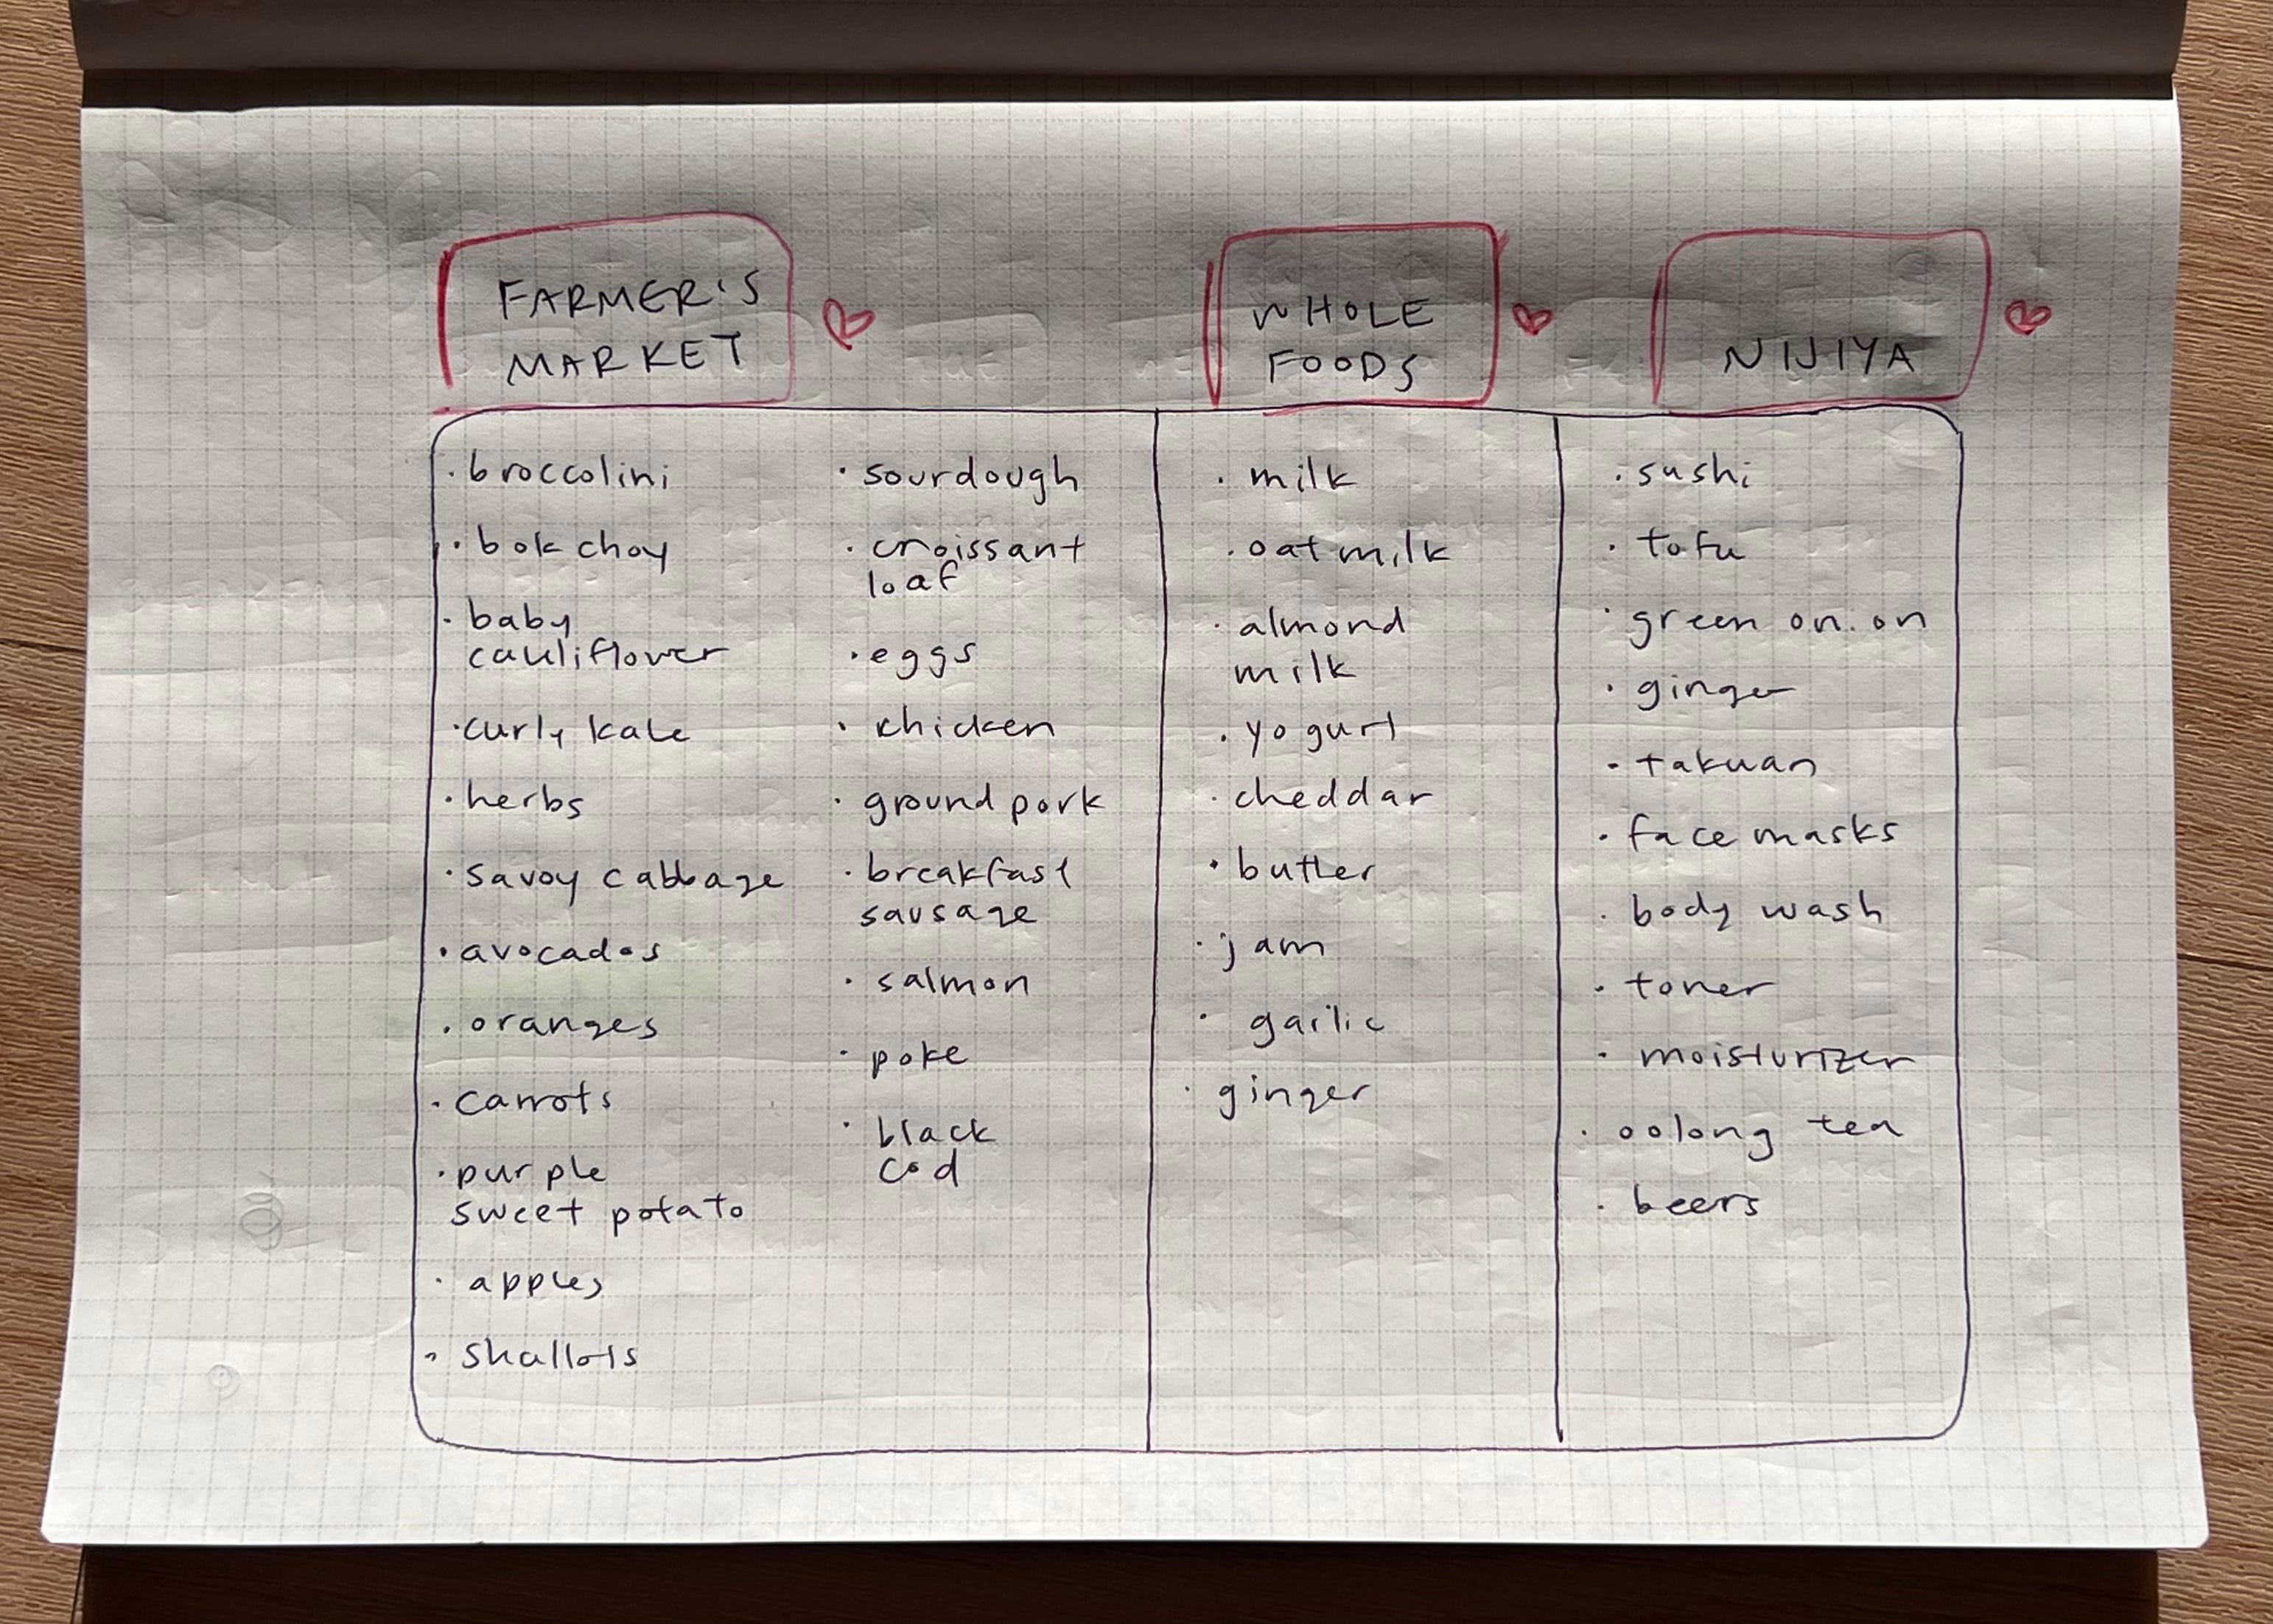 FARMER'S
MARKET
· broccolini
· bok choy
· baby
cauliflower
· curly kale
· herbs
· savoy cabbage
· avocados
· oranges
· carrots
· purple
sweet potato
· apples
· shallots
· sourdough
· croissant
loaf
· eggs
· chicken
· ground pork
· breakfast
sausage
· salmon
· poke
· black
cod
WHOLE
FOODS
· milk
· oat milk
· almond
milk
· yogurt
· cheddar
· butter
· jam
· garlic
· ginger
NIJIYA
· sushi
· tofu
· green onion
· ginger
· takuan
· face masks
· body wash
· toner
· moisturizer
· oolong tea
· beers